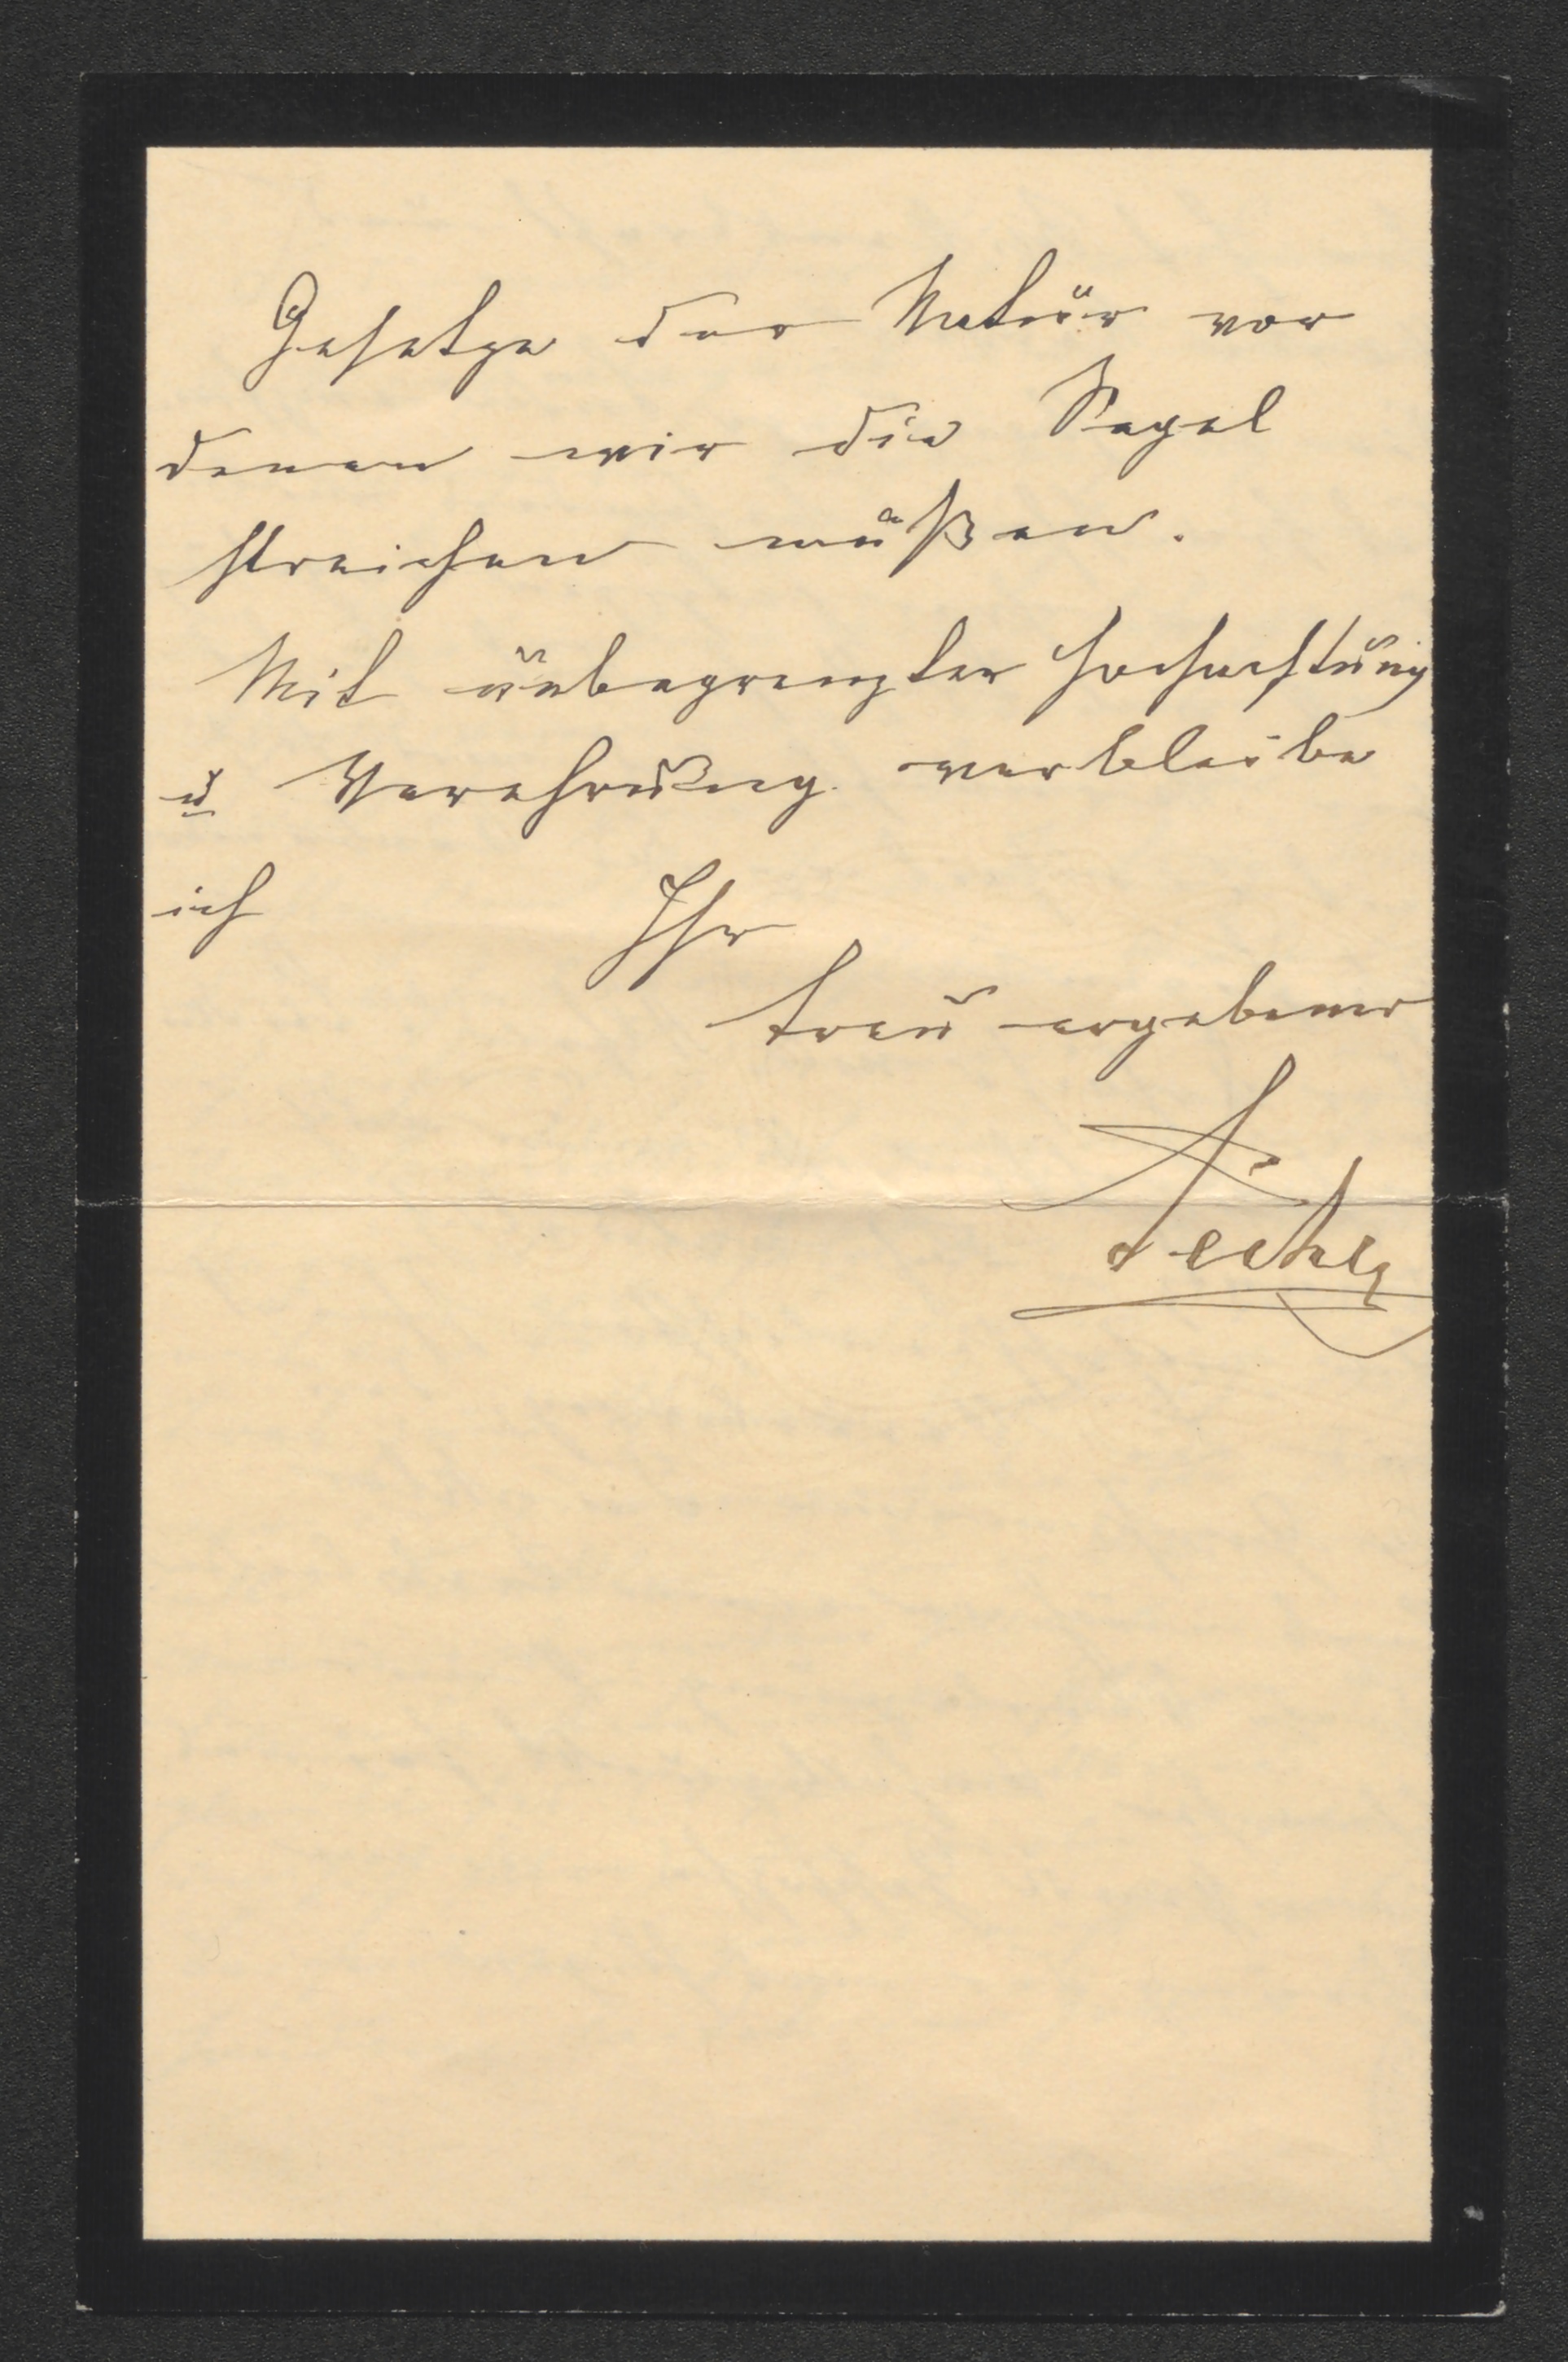 Gesetze der Natur vor
denen wir die Segel
streichen müßen.
Mit unbegrenzter Hochachtung
u Verehrung verbleibe
ich Ihr
treu ergebener